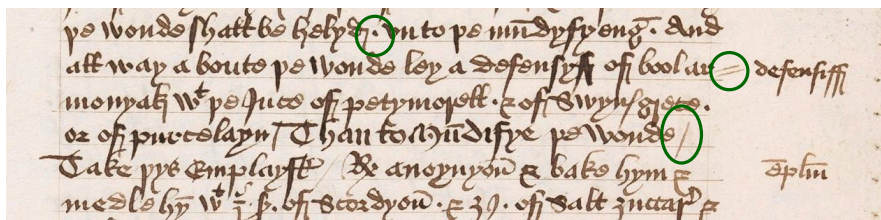 þe wonde shall be helyd. vn to þe mūdyfyeng. And
all way a boute þe wonde ley a defensyff off bool ar= defensiff
monyak wt þe Juce off petymorell. & off Swynsgrece.
or off purcelayn / Than to Mūdifye þe wonde /
Take þys Emplastr / Re anoynyoū & bake hym &
medle hȳ wt off Scordyoū. & off Salt